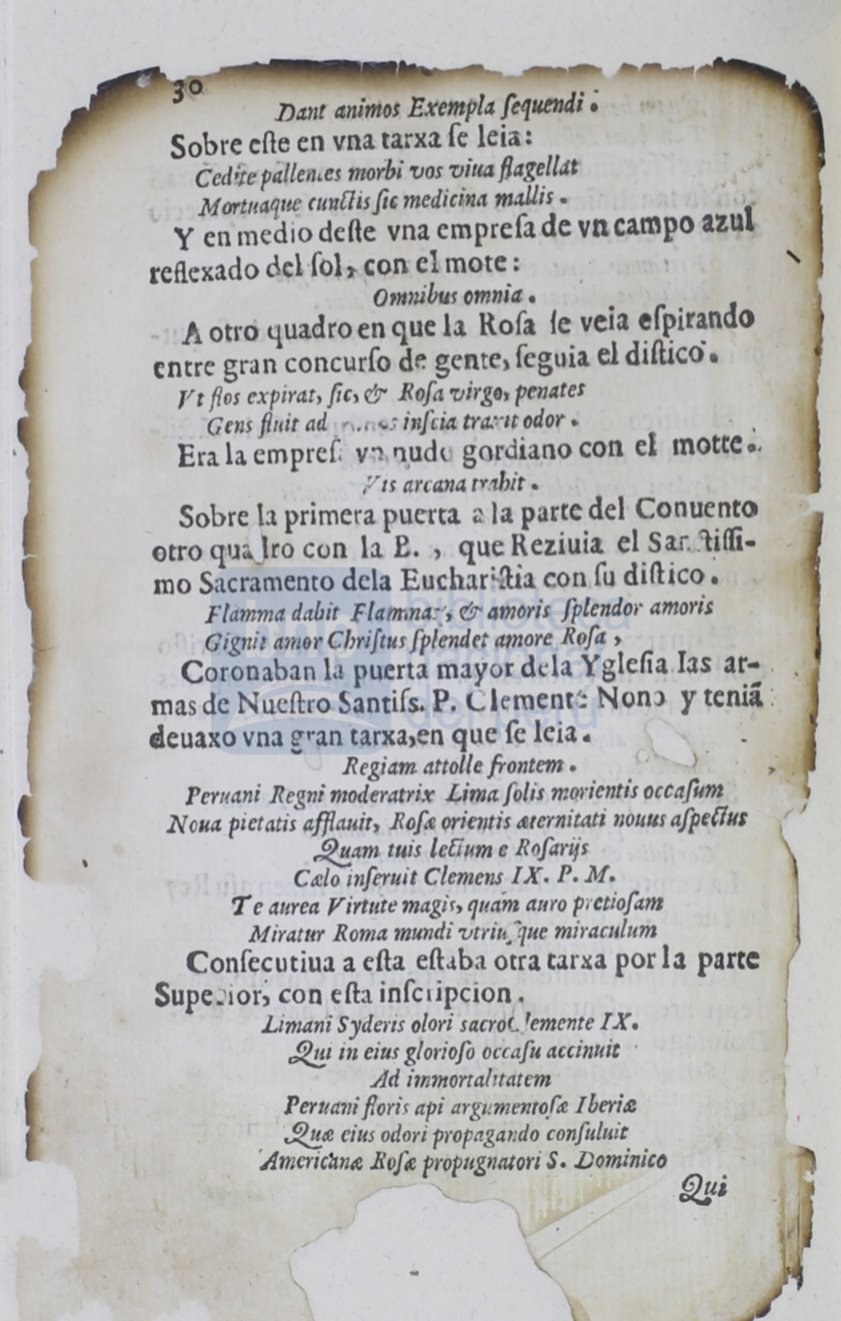 30
Dant animos Exempla ſequendi.
Sobre eſte en vna tarxa ſe leia:
Cedite pallentes morbi vos viua flagellat
Mortuaque cunctis ſic medicina mallis.
Y en medio deſte vna empreſa de vn campo azul
reflexado del ſol, con el mote:
Omnibus omnia.
A otro quadro en que la Roſa ſe veia eſpirando
entre gran concurſo de gente, ſeguia el diſtico.
Vt flos expirat, ſic, & Roſa virgo, penates
Gens fluit ad inſcia traxit odor.
Era la empreſa vn nudo gordiano con el motte.
Vis arcana trahit.
Sobre la primera puerta a la parte del Conuento
otro quadro con la B., que Reziuia el Sanctiſſi-
mo Sacramento dela Euchariſtia con ſu diſtico.
Flamma dabit Flammas, & amoris ſplendor amoris
Gignit amor Chriſtus ſplendet amore Roſa,
Coronaban la puerta mayor dela Ygleſia las ar-
mas de Nueſtro Santiſs. P. Clemente Nono y teniã
deuaxo vna gran tarxa, en que ſe leia.
Regiam attolle frontem.
Peruani Regni moderatrix Lima ſolis morientis occaſum
Noua pietatis afflauit, Roſæ orientis æternitati nouus aſpectus
Quam tuis lectum e Roſarijs
Cælo inſeruit Clemens IX. P. M.
Te aurea Virtute magis, quám auro pretioſam
Miratur Roma mundi vtriuſque miraculum
Conſecutiua a eſta eſtaba otra tarxa por la parte
Superior, con eſta inſcripcion.
Limani Syderis olori sacro Clemente IX.
Qui in eius glorioſo occaſu accinuit
Ad immortalitatem
Peruani floris api argumentoſæ Iberiæ
Quæ eius odori propagando conſuluit
Americanæ Roſæ propugnatori S. Dominico
Qui
biblioteca
del perú